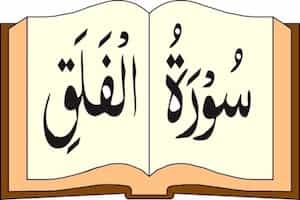 سُوْرَةُ الْفَلَقِ